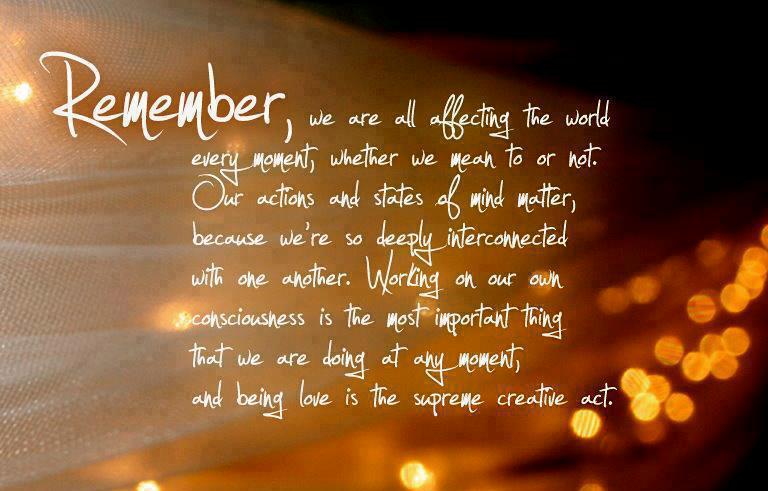 Remember, we are all affecting the world
every moment, whether we mean to or not.
Our actions and states of mind matter,
because we're so deeply interconnected
with one another. Working on our own
consciousness is the most important thing
that we are doing at any moment,
and being love is the supreme creative act.